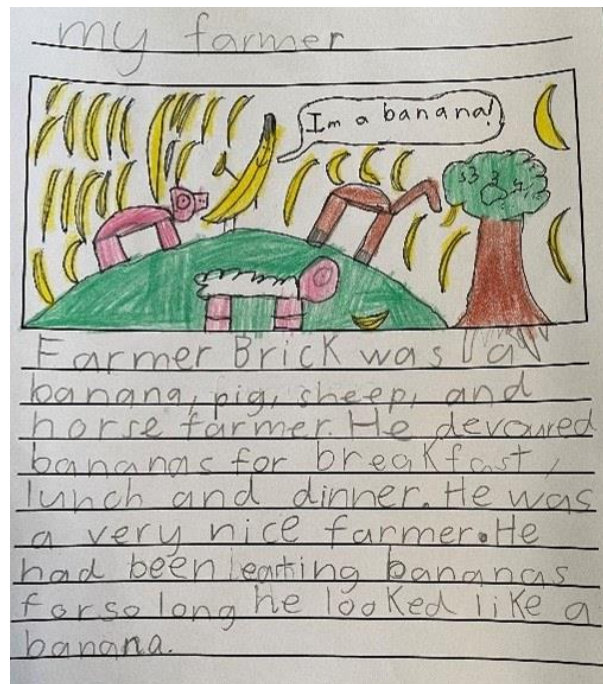 my farmer
Im a banana!
Farmer Brick was a
banana, pig, sheep, and
horse farmer. He devoured
bananas for breakfast,
lunch and dinner. He was
a very nice farmer. He
had been eating bananas
for so long he looked like a
banana.